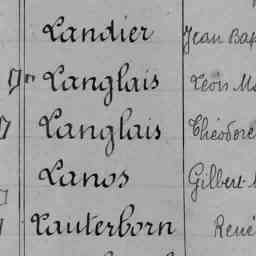 Landier Jean Bap
Langlais Léois Ma
Langlais Théodore
Lanos Gilbert
Lauterborn René